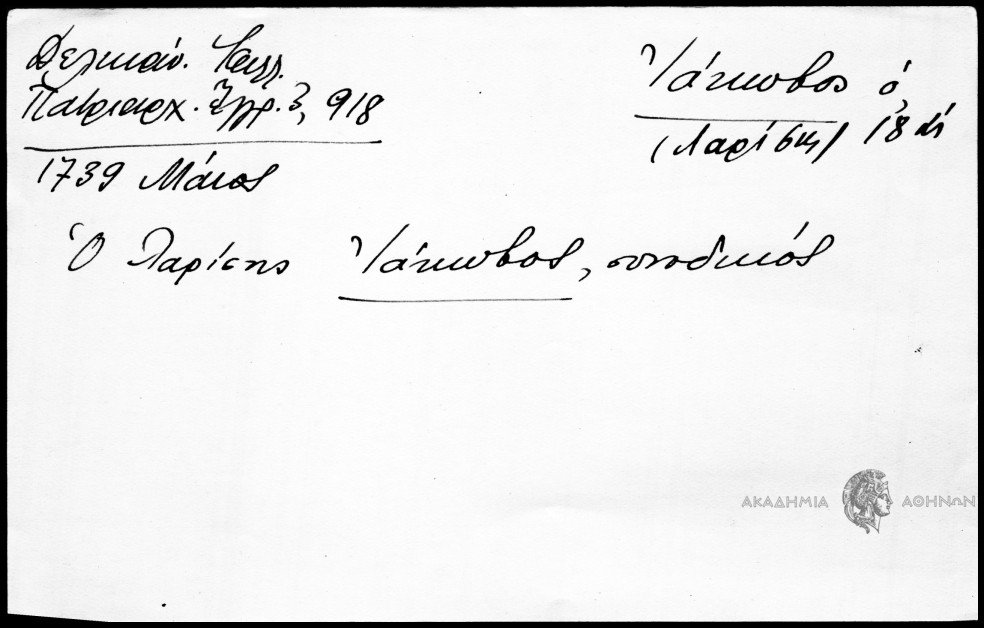 Δελικάν. Καλλ.
Πατριαρχ. Ἔγγρ. 3, 918
1739 Μάιος
Ἰάκωβος ὁ,
(Λαρίσης) 18 αἰ
Ὁ Λαρίσης Ἰάκωβος, συνοδικός
ΑΚΑΔΗΜΙΑ ΑΘΗΝΩΝ